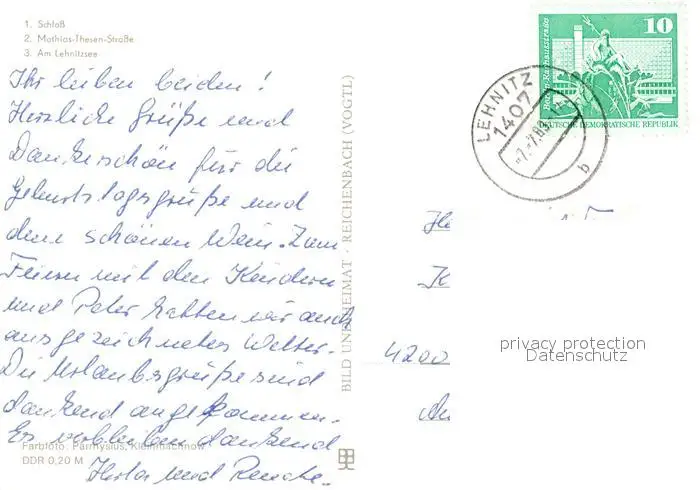 1. Schloß
2. Mathias-Thesen-Straße
3. Am Lehnitzsee
Ihr lieben beiden!
Herzliche Grüße und
Dankeschön für die
Geburtstagsgrüße und
den schönen Wein. Zum
Feiern mit den Kindern
und Peter hatten wir auch
ausgezeichnetes Wetter.
Die Urlaubsgrüße sind
dankend angekommen.
Es verbleiben dankend
und Renate.
Farbfoto: Parmysius, Kleinmachnow
DDR 0,20 M
BILD UND HEIMAT · REICHENBACH (VOGTL)
10
DEUTSCHE DEMOKRATISCHE REPUBLIK
LEHNITZ
1407
b
4200
privacy protection
Datenschutz